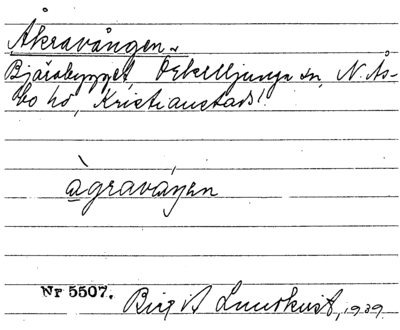 Åkravången.
Bjärabygget, Örkelljunga sn, N. Ås-
bo hd, Kristianstads l.
àgraváŋen
Nr 5507. Birgit Lundkvist, 1939